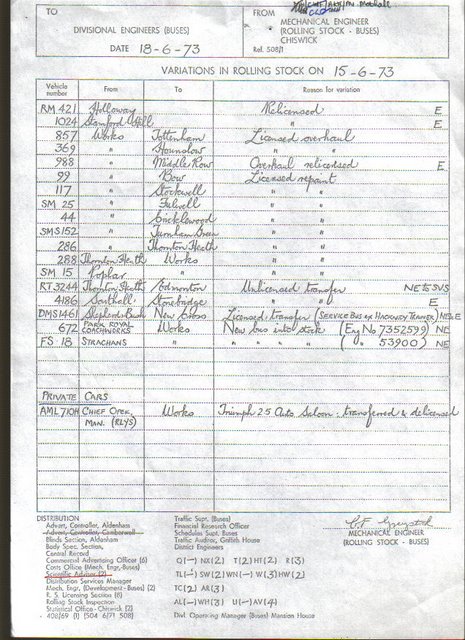 TO
FROM
DIVISIONAL ENGINEERS (BUSES)
MECHANICAL ENGINEER
(ROLLING STOCK - BUSES)
CHISWICK
DATE 18-6-73
Ref. 508/1
VARIATIONS IN ROLLING STOCK ON 15-6-73
Vehicle number From To Reason for variation
RM 421 Holloway Relicensed E
1024 Stamford Hill " E
857 Works Tottenham Licensed overhaul
369 " Hounslow " "
988 " Middle Row Overhaul relicensed E
99 " Bow Licensed repaint
117 " Stockwell " "
SM 25 " Fulwell " "
44 " Cricklewood " "
SMS 152 " Turnham Green " "
286 " Thornton Heath " "
288 Thornton Heath Works " "
SM 15 Poplar " " "
RT 3244 Thornton Heath Edmonton Unlicensed transfer
4186 Southall Stonebridge " " E
DMS 1461 Shepherds Bush New Cross Licensed transfer (SERVICE BUS ex HACKNEY TRAINER)
672 PARK ROYAL COACHWORKS Works New bus into stock (Eng No 7352599) NE
FS 18 STRACHANS " " " " " ( " 53900) NE
PRIVATE CARS
AML 710H CHIEF OPER. MAN. (RLYS) Works Triumph 2.5 Auto Saloon: transferred & delicensed
DISTRIBUTION
Advert. Controller, Aldenham
Advert. Controller, Camberwell
Blinds Section, Aldenham
Body Spec. Section,
Central Record
Commercial Advertising Officer (6)
Costs Office (Mech. Engr.-Buses)
Scientific Adviser (2)
Distribution Services Manager
Mech. Engr. (Development - Buses) (2)
R. S. Licensing Section (8)
Rolling Stock Inspection
Statistical Office - Chiswick (2)
408/69 (1) (504 6/71 508)
Traffic Supt. (Buses)
Financial Research Officer
Schedules Supt. Buses
Traffic Auditor, Griffith House
District Engineers
Q(-) NX(2) T(2) HT(2) R(3)
TL(-) SW(2) WN(-) W(3) HW(2)
TC(2) AR(3)
AL(-) WH(3) U(-) AV(4)
Divl. Operating Manager (Buses) Mansion House
MECHANICAL ENGINEER
(ROLLING STOCK - BUSES)